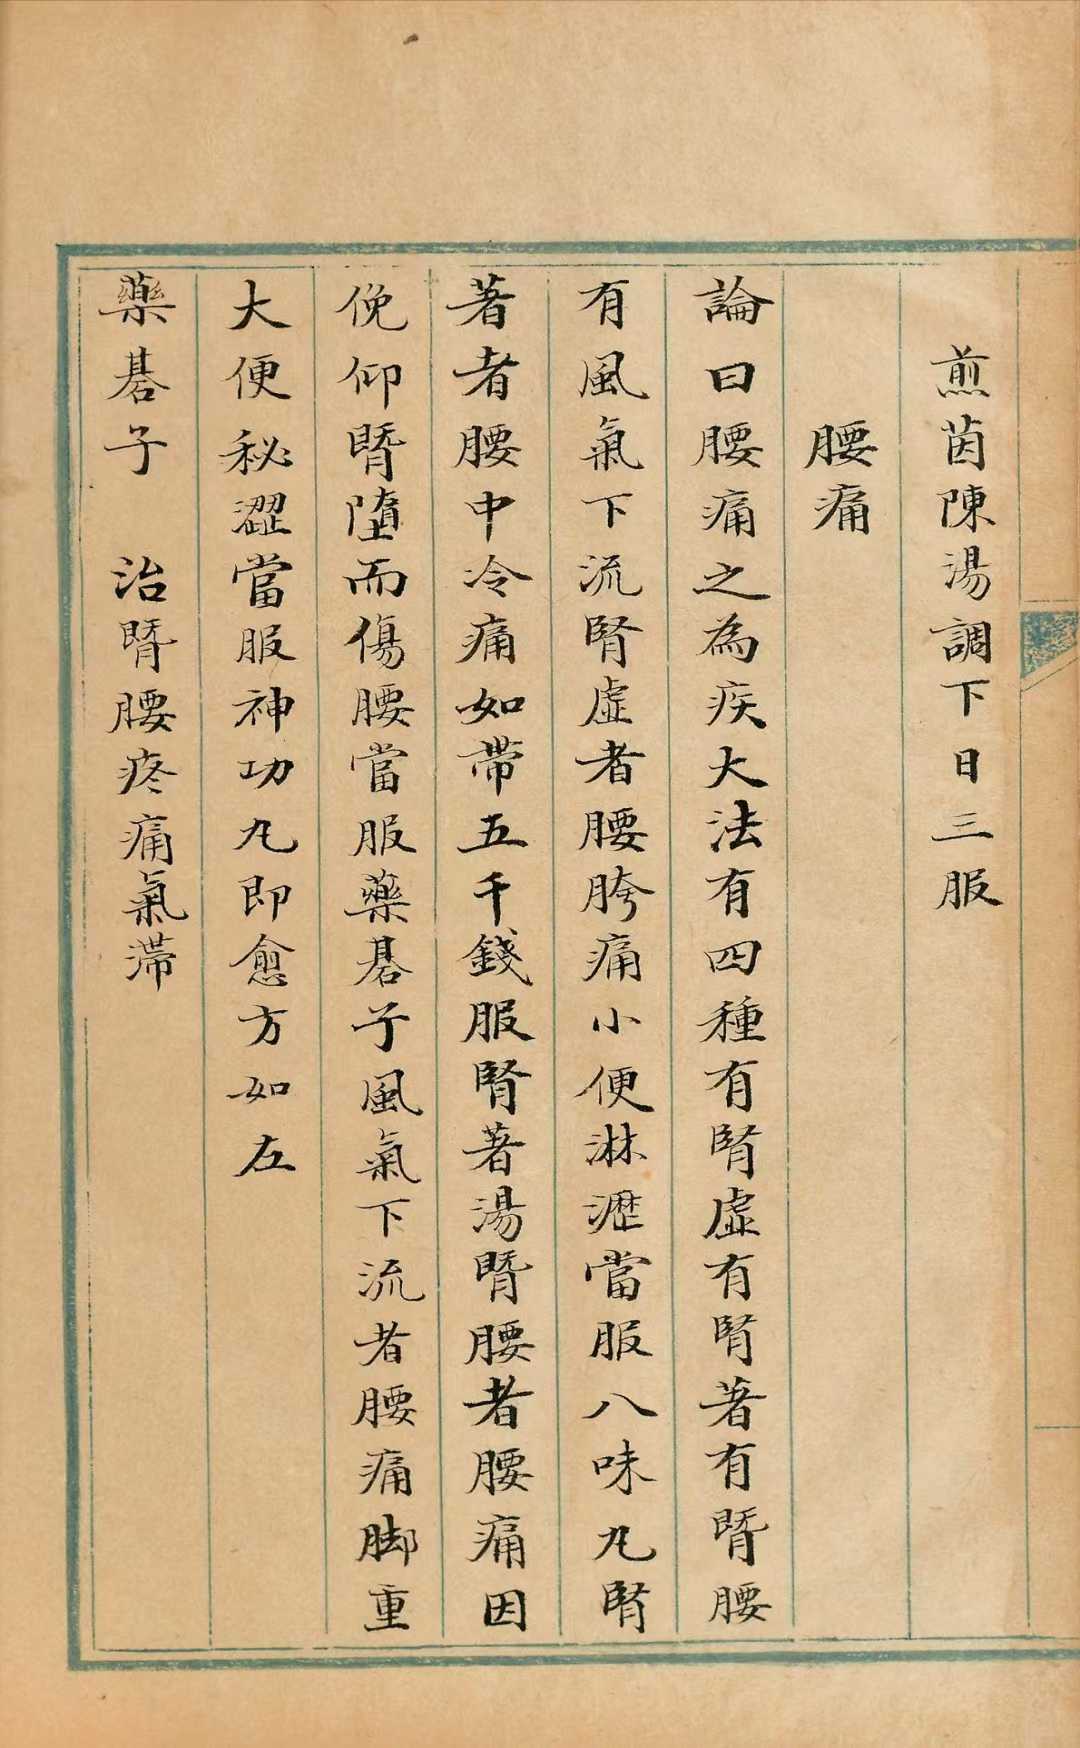 煎茵陳湯調下日三服
腰痛
論曰腰痛之為疾大法有四種有腎虛有腎著有䐴腰
有風氣下流腎虛者腰胯痛小便淋瀝當服八味丸腎
著者腰中冷痛如帶五千錢服腎著湯䐴腰者腰痛因
俛仰䐴墮而傷腰當服藥碁子風氣下流者腰痛脚重
大便秘澀當服神功丸即愈方如左
藥碁子　治䐴腰疼痛氣滯